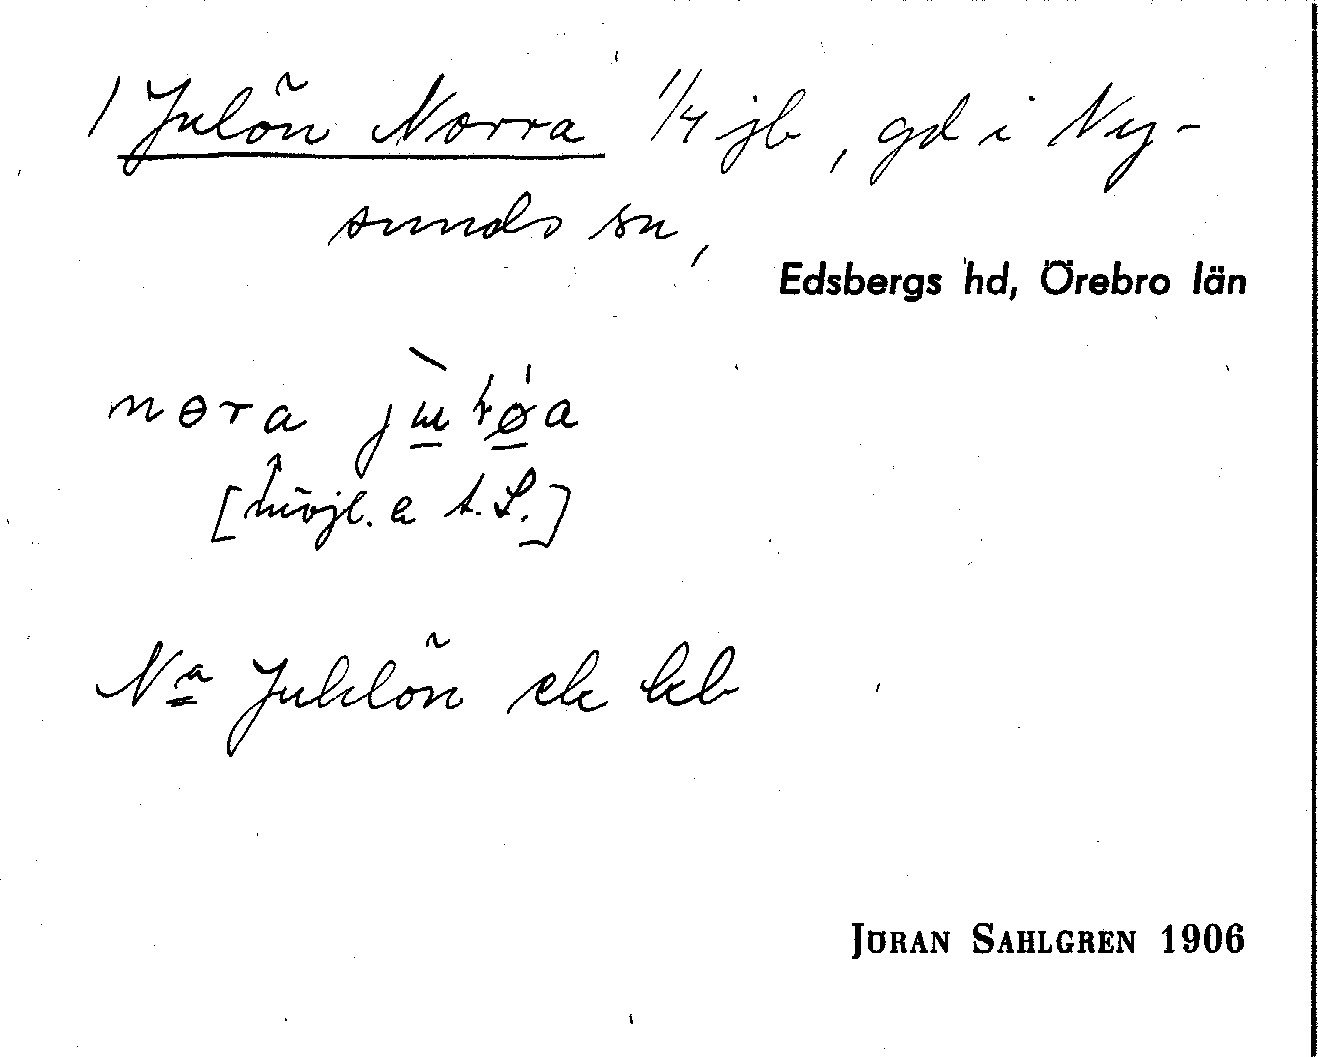 1 Julön Norra 1/4 jb, gd i Ny-
sunds sn,
Edsbergs hd, Örebro län
nɵra
[möjl. a t. S.]
Nª Juhlön ek kb
JÖRAN SAHLGREN 1906